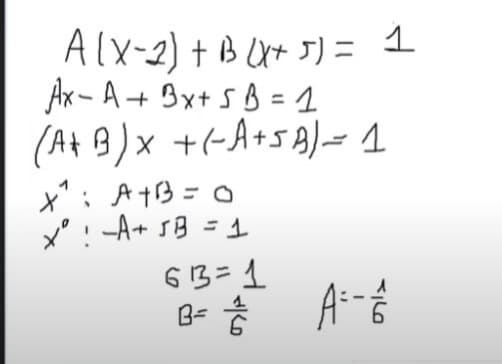 A(x-2) + B(x+5) = 1
Ax - A + Bx + 5B = 1
(A+B)x + (-A+5B) = 1
x¹ : A+B = 0
x⁰ : -A+5B = 1
6B = 1
B = 1/6 A = -1/6